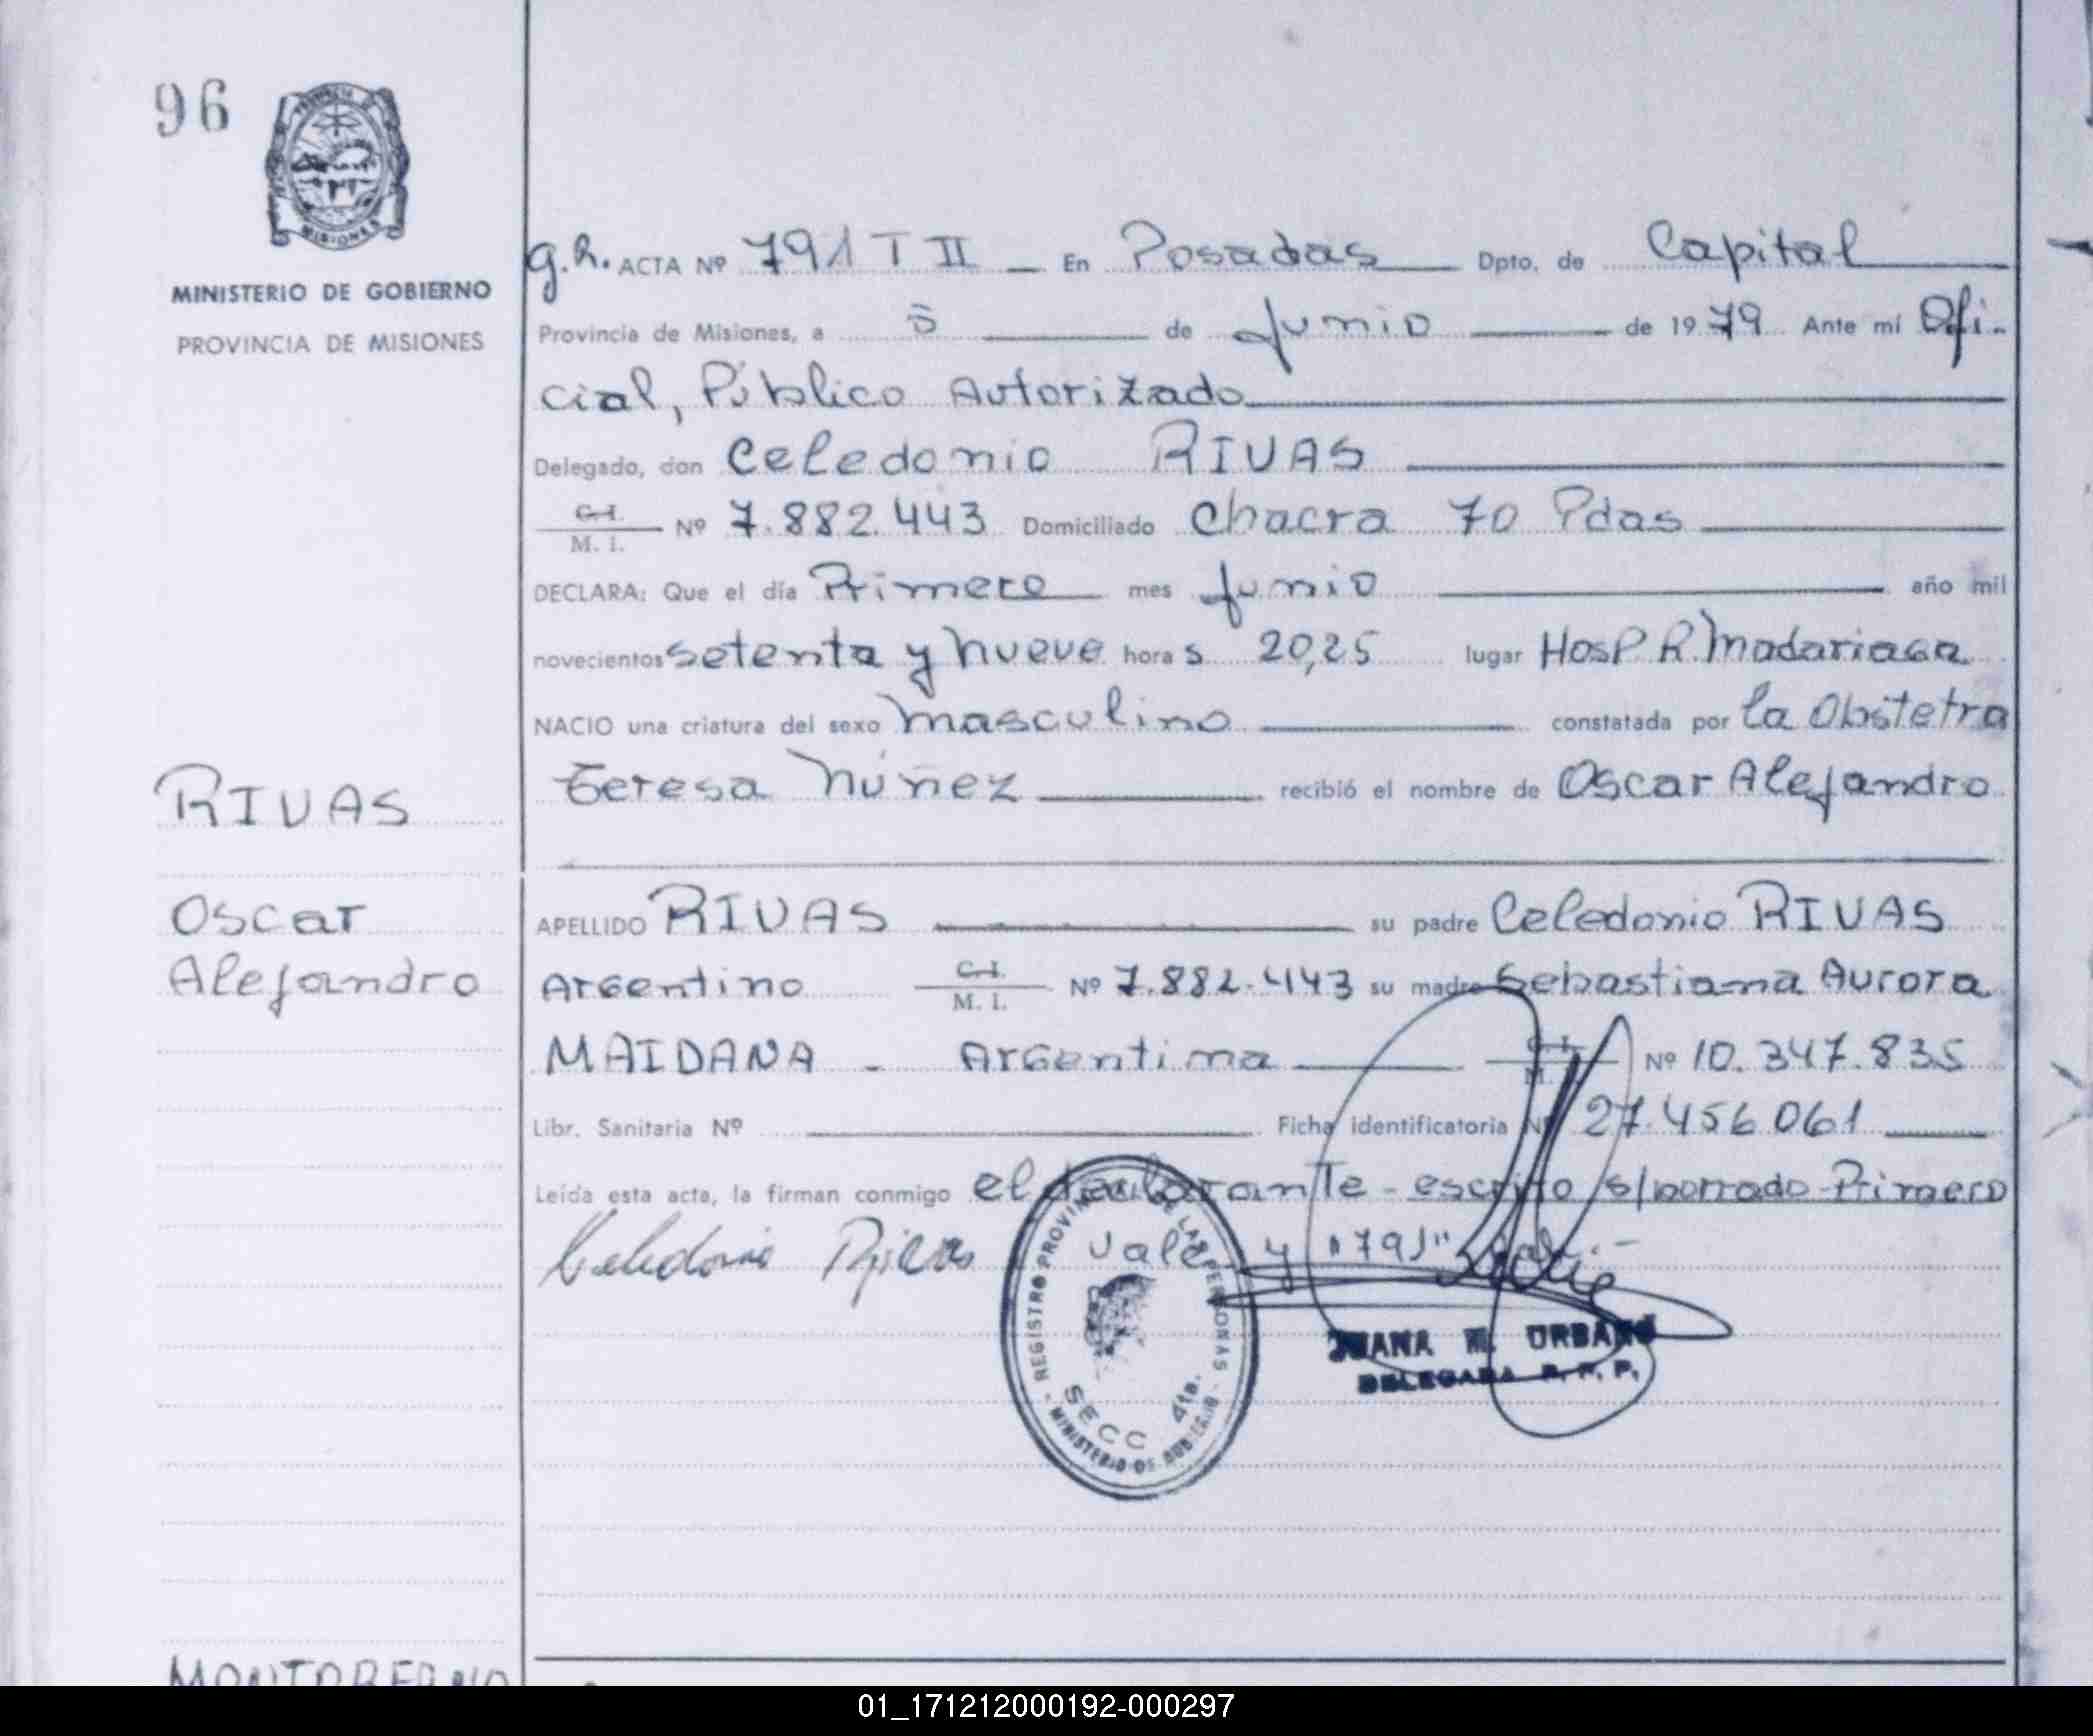 96
PROVINCIA DE
MISIONES
MINISTERIO DE GOBIERNO
PROVINCIA DE MISIONES
g.h. ACTA Nº 791 T II — En Posadas Dpto. de Capital
Provincia de Misiones, a 5 de Junio de 1979 Ante mí Ofi-
cial, Público Autorizado
Delegado, don Celedonio RIVAS
C.I.
M. I. Nº 7.882.443 Domiciliado Chacra 70 Pdas
DECLARA: Que el día Primero mes Junio año mil
novecientos setenta y nueve horas 20,25 lugar Hosp. R. Madariaga
NACIO una criatura del sexo masculino constatada por la Obstetra
Teresa Núñez recibió el nombre de Oscar Alejandro
RIVAS
Oscar
Alejandro
APELLIDO RIVAS su padre Celedonio RIVAS
Argentino C.I.
M. I. Nº 7.882.443 su madre Sebastiana Aurora
MAIDANA - Argentina C.I.
M. Nº 10.347.835
Libr. Sanitaria Nº Ficha identificatoria Nº 27.456.061
Leída esta acta, la firman conmigo el declarante - escrito s/borrado - Primero
Vale y "791" Vale.-
Celedonio Rivas
REGISTRO PROVINCIAL DE LAS PERSONAS
SECC 4ta.
MINISTERIO DE GOBIERNO
JUANA URBANO
DELEGADA R. P. P.
01_171212000192-000297